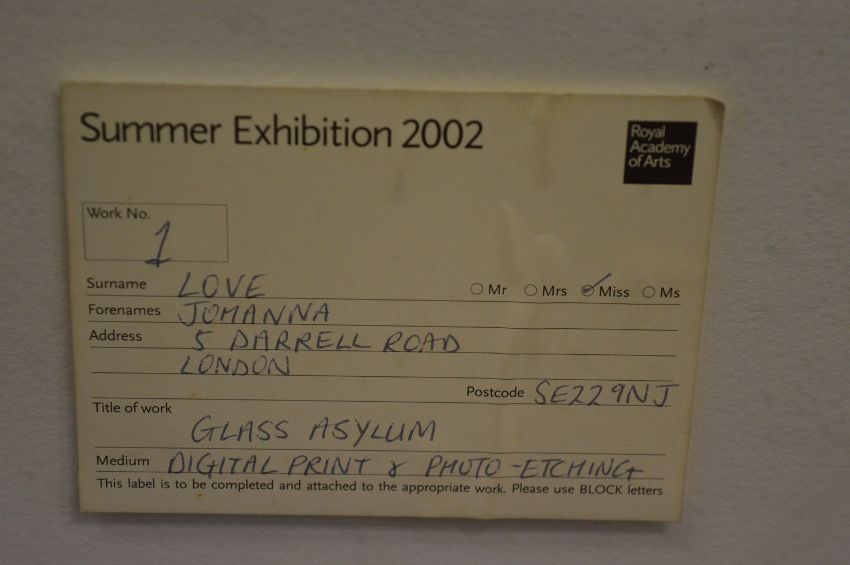 Summer Exhibition 2002
Royal
Academy
of Arts
Work No.
1
Surname LOVE Mr Mrs Miss Ms
Forenames JOHANNA
Address 5 DARRELL ROAD
LONDON
Postcode SE22 9NJ
Title of work
GLASS ASYLUM
Medium DIGITAL PRINT & PHOTO-ETCHING
This label is to be completed and attached to the appropriate work. Please use BLOCK letters